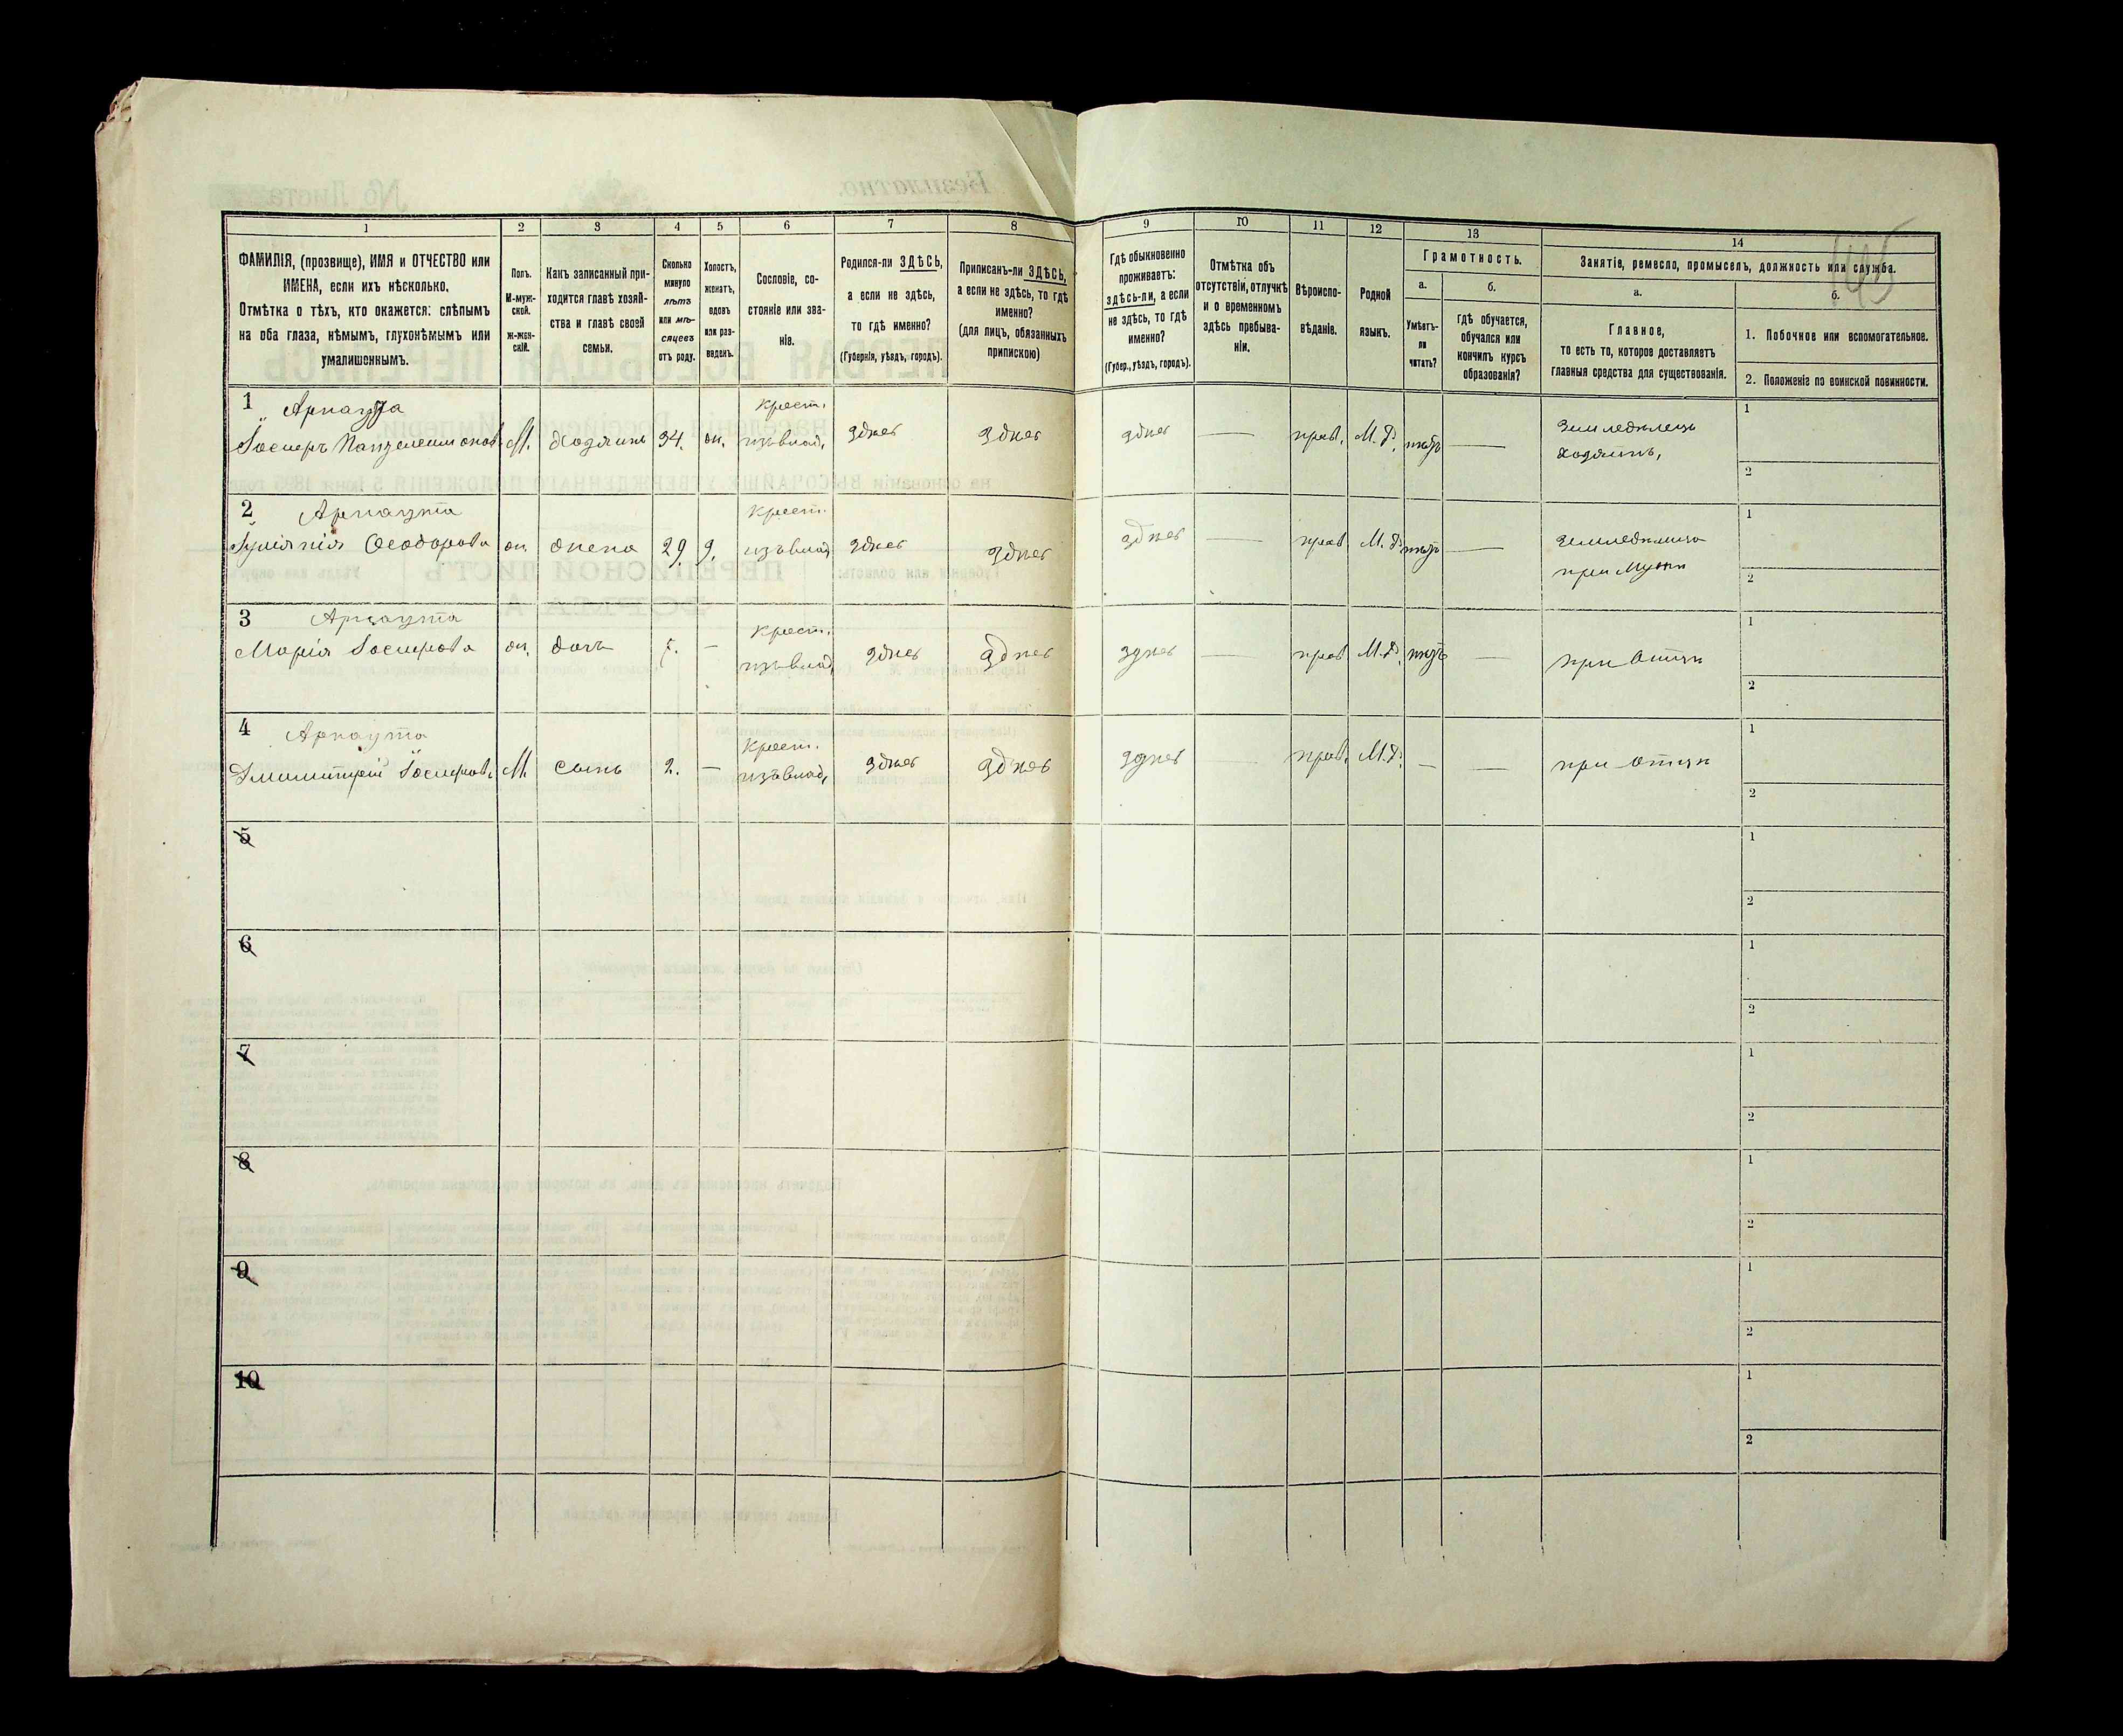 145
1
2
3
4
5
6
7
8
9
10
11
12
13
14
ФАМИЛІЯ, (прозвище), ИМЯ и ОТЧЕСТВО или
ИМЕНА, если ихъ нѣсколько.
Отмѣтка о тѣхъ, кто окажется: слѣпымъ
на оба глаза, нѣмымъ, глухонѣмымъ или
умалишеннымъ.
Полъ.
М-муж-
ской.
Ж-жен-
скій.
Какъ записанный при-
ходится главѣ хозяй-
ства и главѣ своей
семьи.
Сколько
минуло
лѣтъ
или мѣ-
сяцевъ
отъ роду.
Холостъ,
женатъ,
вдовъ
или раз-
веденъ.
Сословіе, со-
стояніе или зва-
ніе.
Родился-ли ЗДѢСЬ,
а если не здѣсь,
то гдѣ именно?
(Губернія, уѣздъ, городъ).
Приписанъ-ли ЗДѢСЬ,
а если не здѣсь, то гдѣ
именно?
(для лицъ, обязанныхъ
припискою)
Гдѣ обыкновенно
проживаетъ:
здѣсь-ли, а если
не здѣсь, то гдѣ
именно?
(Губер., уѣздъ, городъ).
Отмѣтка объ
отсутствіи, отлучкѣ
и о временномъ
здѣсь пребыва-
ніи.
Вѣроиспо-
вѣданіе.
Родной
языкъ.
Грамотность.
а.
Умѣетъ-
ли
читать?
б.
Гдѣ обучается,
обучался или
кончилъ курсъ
образованія?
Занятіе, ремесло, промыселъ, должность или служба.
а.
Главное,
то есть то, которое доставляетъ
главныя средства для существованія.
б.
1. Побочное или вспомогательное.
2. Положеніе по воинской повинности.
1 Арнаута крест. 1
М. хозяинъ 34. ж. изъ влад. здѣсь здѣсь здѣсь — прав. М. д. нѣтъ — Земледѣлецъ
хозяинъ, 2
2 Арнаута крест. 1
Іуліянія Ѳеодорова ж. жена 29. изъ влад. здѣсь здѣсь здѣсь — прав. М. д. нѣтъ —
при Мужѣ 2
3 Арнаута крест. 1
Марія Іосифова ж. дочь — изъ влад. здѣсь здѣсь здѣсь — прав. М. д. нѣтъ — при Отцѣ
2
4 Арнаута крест. 1
Димитрій Іосифовъ М. сынъ 2. — изъ влад. здѣсь здѣсь здѣсь — прав. М. д. — — при Отцѣ
2
5 1
2
6 1
2
7 1
2
8 1
2
9 1
2
10 1
2